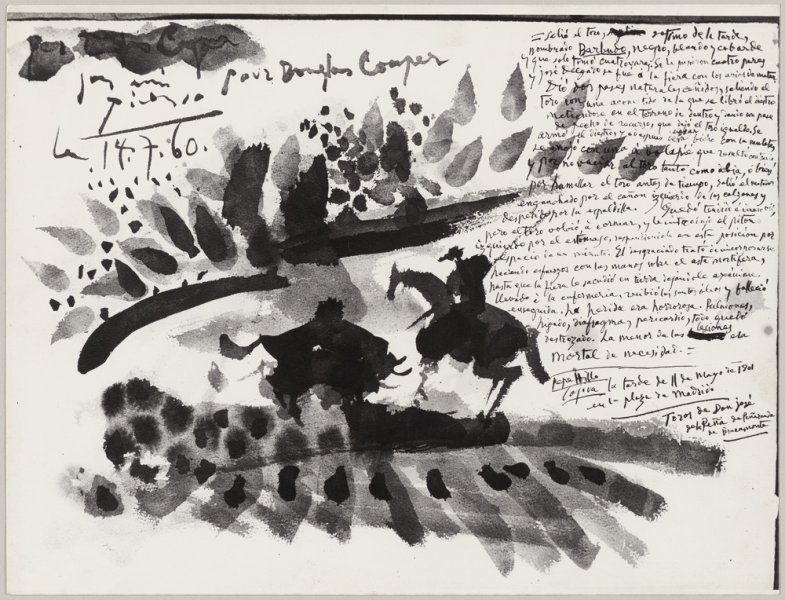 pour Douglas Cooper
pour Douglas Cooper
son ami
Picasso
Le 14.7.60.
= Salió el toro, septimo de la tarde,
nombrado Barbudo, negro, blando y cobarde
y que solo tomó cuatro varas; Se le pusieron cuatro pares
y José Delgado se fue á la fiera con los avios de matar.
Dió dos pases naturales ceñidos, saliendo el
toro con una de la que se libró el diestro
metiendose en el terreno de dentro y dando un pase
de pecho de recursos que dejó el toro
armó el diestro y
y por el toro tanto como
por el toro antes de tiempo, salió el matador
enganchado por el cañon izquierdo de los calzones y
despedido por la espaldilla. Quedó tendido é inmovil,
pero el toro volvió á cornear, y le introdujo el piton
izquierdo por el estomago, suspendiendole en esta posicion por
espacio de un minuto. El desgraciado trató de incorporarse
haciendo esfuerzos con las manos sobre el asta mortifera,
hasta que la fiera lo sacudió en tierra dejandole exánime.
llevado á la enfermeria, recibió los santos óleos y falleció
enseguida. La herida era horrorosa. Pulmones,
higado, diafragma, pericardio, todo quedó
destrozado. La menor de las lesiones era
mortal de necesidad. =
Pepe Hillo
Cogida la tarde de 11 de Mayo de 1801
en la plaza de Madrid
Toros de Don José
de la Peña de Peñaranda
de Bracamonte